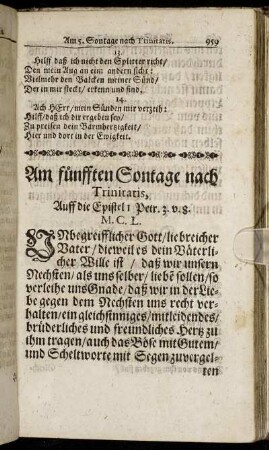 Am 5. Sontage nach Trinitatis. 959
13.
Hilff daß ich nicht den Splitter richt/
Den mein Aug an ein andern sicht:
Vielmehr den Balcken meiner Sünd/
Der in mir steckt/ erkenn und find.
14.
Ach HErr/ mein Sünden mir verzeih:
Hilff/ daß ich dir ergeben sey/
Zu preisen dein Barmhertzigkeit/
Hier und dort in der Ewigkeit.
Am fünfften Sontage nach
Trinitatis,
Auff die Epistel 1 Petr. 3. v. 8.
M. C. L.
UNbegreifflicher Gott/ liebreicher
Vater/ dieweil es dein Väterli-
cher Wille ist / daß wir unsern
Nechsten/ als uns selber/ liebē sollen/ so
verleihe uns Gnade/ daß wir in der Lie-
be gegen dem Nechsten uns recht ver-
halten/ ein gleichsinniges/ mitleidendes/
brüderliches und freundliches Hertz zu
ihm tragen/ auch das Böse mit Gutem/
und Scheltworte mit Segen zuvergel-
ten